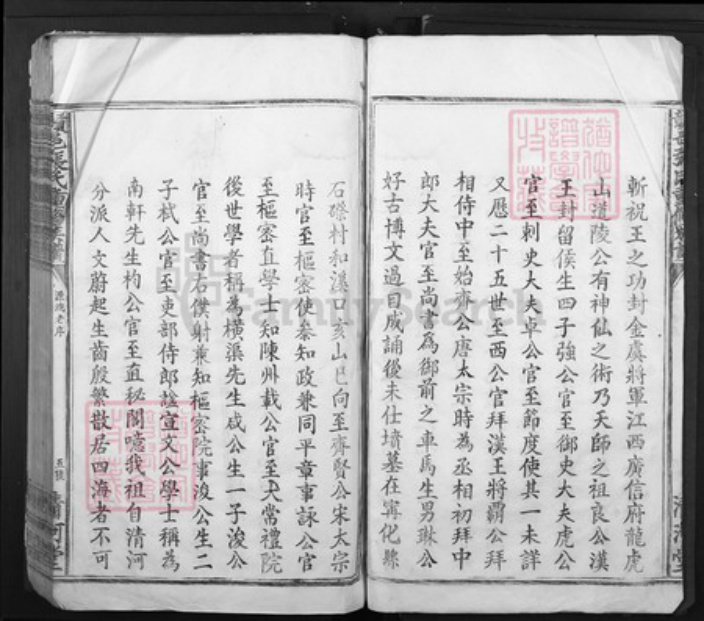 斬祝王之功封金虞將軍江西廣信府龍虎
山道陵公有神仙之術乃天師之祖良公漢
王封留侯生四子強公官至御史大夫虎公
官至刺史大夫卓公官至節度使其一未詳
又歷二十五世至西公官拜漢王將霸公拜
相侍中至始齊公唐太宗時為丞相初拜中
郎大夫官至尚書為御前之車馬生男琳公
好古博文過目成誦優未仕墳墓在寗化縣
石磜村和溪口亥山巳向至齊賢公宋太宗
時官至樞密使叅知政兼同平章事詠公官
至樞密直學士知陳州載公官至大常禮院
後世學者稱為橫渠先生咸公生一子浚公
官至尚書右僕射兼知樞密院事浚公生二
子栻公官至吏部侍郎諡宣文公學士稱為
南軒先生枃公官至直秘閣噫我祖自清河
分派人文蔚起生齒殷繁散居四海者不可
張氏
源流老序
五號
清河堂
清河堂
FamilySearch